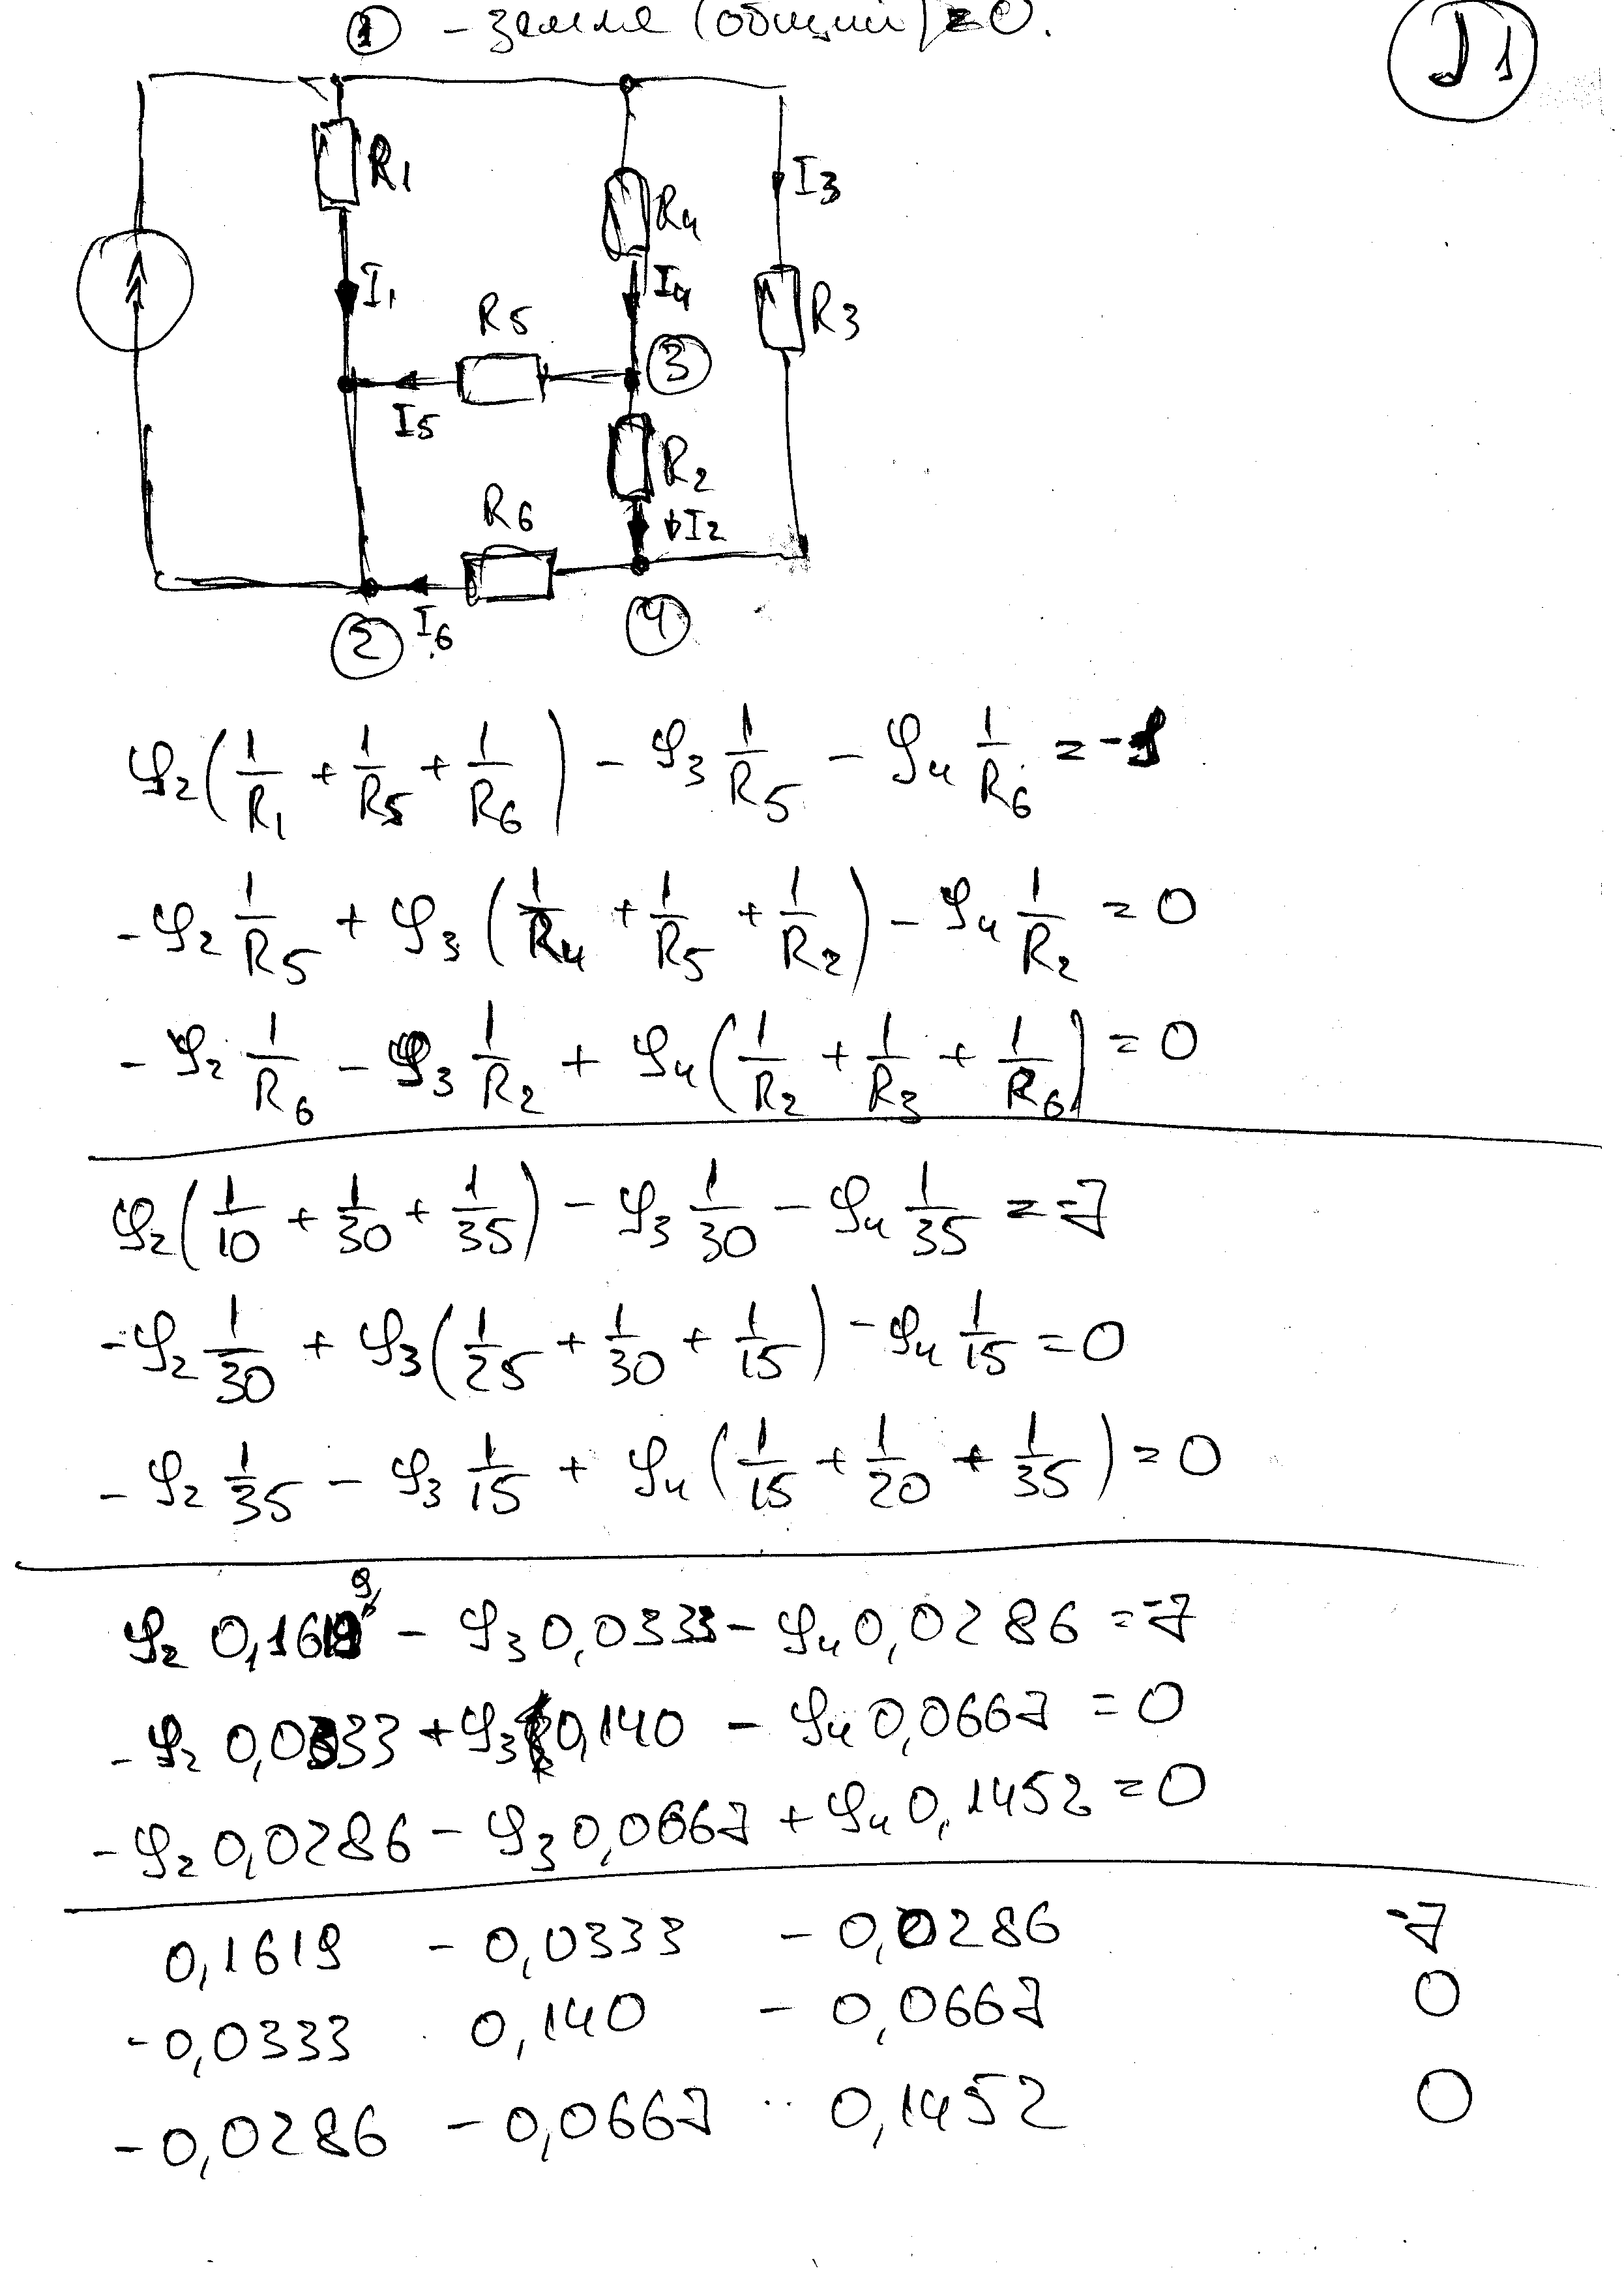 ① – земля (общий) = 0.
J1
R1
R4
I3
I1
I4
R3
R5
③
I5
R2
R6
I2
②
I6
④
φ2(1/R1 + 1/R5 + 1/R6) – φ3 1/R5 – φ4 1/R6 = -J
-φ2 1/R5 + φ3 (1/R4 + 1/R5 + 1/R2) – φ4 1/R2 = 0
- φ2 1/R6 – φ3 1/R2 + φ4 (1/R2 + 1/R3 + 1/R6) = 0
φ2(1/10 + 1/30 + 1/35) – φ3 1/30 – φ4 1/35 = -7
-φ2 1/30 + φ3(1/25 + 1/30 + 1/15) – φ4 1/15 = 0
- φ2 1/35 – φ3 1/15 + φ4 (1/15 + 1/20 + 1/35) = 0
9
φ2 0,1619 – φ3 0,0333 – φ4 0,0286 = -7
- φ2 0,0333 + φ3 0,140 – φ4 0,0667 = 0
- φ2 0,0286 – φ3 0,0667 + φ4 0,1452 = 0
0,1619 - 0,0333 - 0,0286 -7
-0,0333 0,140 - 0,0667 0
-0,0286 - 0,0667 0,1452 0